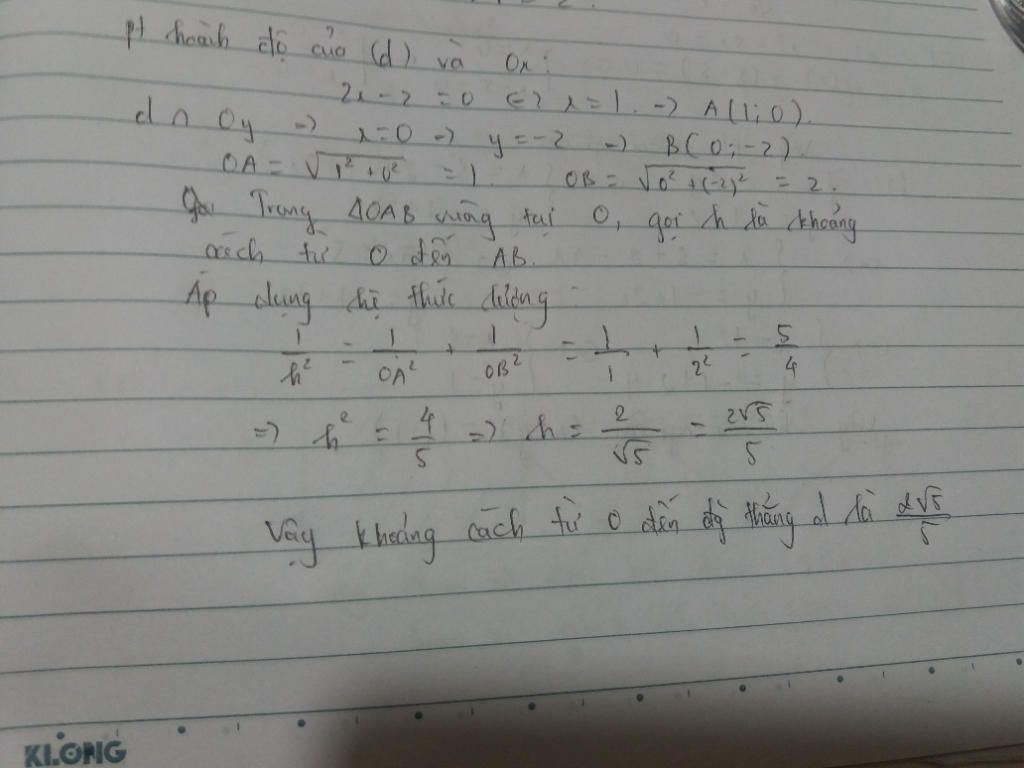 pt hoành độ của (d) và Ox:
2x - 2 = 0 <=> x = 1. => A(1; 0).
d ∩ Oy => x = 0 => y = -2 => B(0; -2).
OA = √(1² + 0²) = 1. OB = √(0² + (-2)²) = 2.
Trong ΔOAB vuông tại O, gọi h là khoảng
cách từ O đến AB.
Áp dụng hệ thức lượng:
1/h² = 1/OA² + 1/OB² = 1/1 + 1/2² = 5/4
=> h² = 4/5 => h = 2/√5 = 2√5/5
Vậy khoảng cách từ O đến đg thẳng d là 2√5/5
KLONG